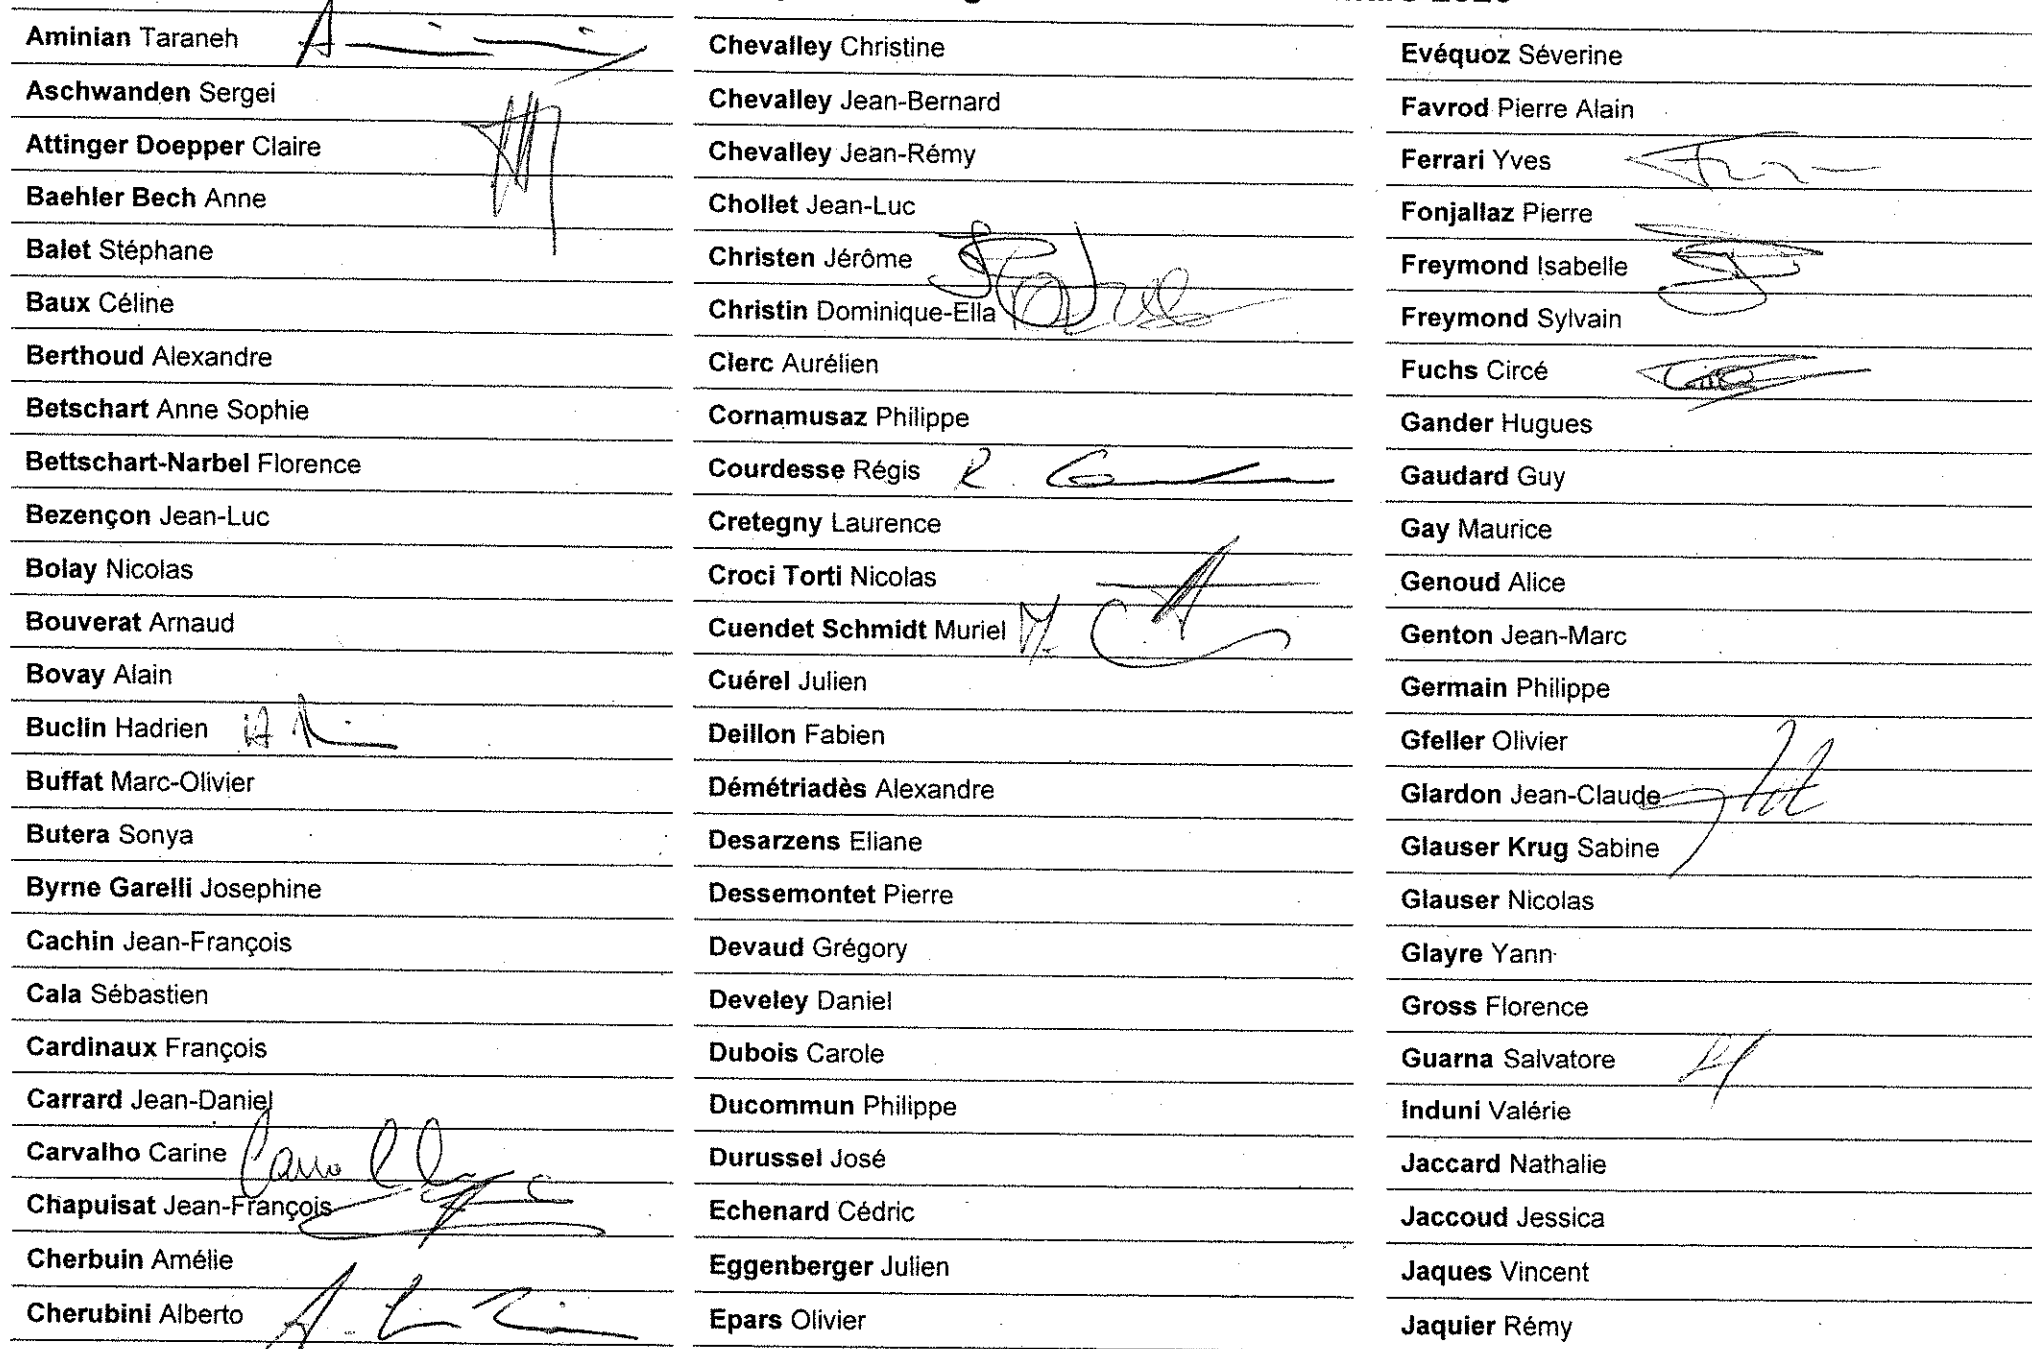 2020
Aminian Taraneh
Aschwanden Sergei
Attinger Doepper Claire
Baehler Bech Anne
Balet Stéphane
Baux Céline
Berthoud Alexandre
Betschart Anne Sophie
Bettschart-Narbel Florence
Bezençon Jean-Luc
Bolay Nicolas
Bouverat Arnaud
Bovay Alain
Buclin Hadrien
Buffat Marc-Olivier
Butera Sonya
Byrne Garelli Josephine
Cachin Jean-François
Cala Sébastien
Cardinaux François
Carrard Jean-Daniel
Carvalho Carine
Chapuisat Jean-François
Cherbuin Amélie
Cherubini Alberto
Chevalley Christine
Chevalley Jean-Bernard
Chevalley Jean-Rémy
Chollet Jean-Luc
Christen Jérôme
Christin Dominique-Ella
Clerc Aurélien
Cornamusaz Philippe
Courdesse Régis R.
Cretegny Laurence
Croci Torti Nicolas
Cuendet Schmidt Muriel
Cuérel Julien
Deillon Fabien
Démétriadès Alexandre
Desarzens Eliane
Dessemontet Pierre
Devaud Grégory
Develey Daniel
Dubois Carole
Ducommun Philippe
Durussel José
Echenard Cédric
Eggenberger Julien
Epars Olivier
Evéquoz Séverine
Favrod Pierre Alain
Ferrari Yves
Fonjallaz Pierre
Freymond Isabelle
Freymond Sylvain
Fuchs Circé
Gander Hugues
Gaudard Guy
Gay Maurice
Genoud Alice
Genton Jean-Marc
Germain Philippe
Gfeller Olivier
Glardon Jean-Claude
Glauser Krug Sabine
Glauser Nicolas
Glayre Yann
Gross Florence
Guarna Salvatore
Induni Valérie
Jaccard Nathalie
Jaccoud Jessica
Jaques Vincent
Jaquier Rémy